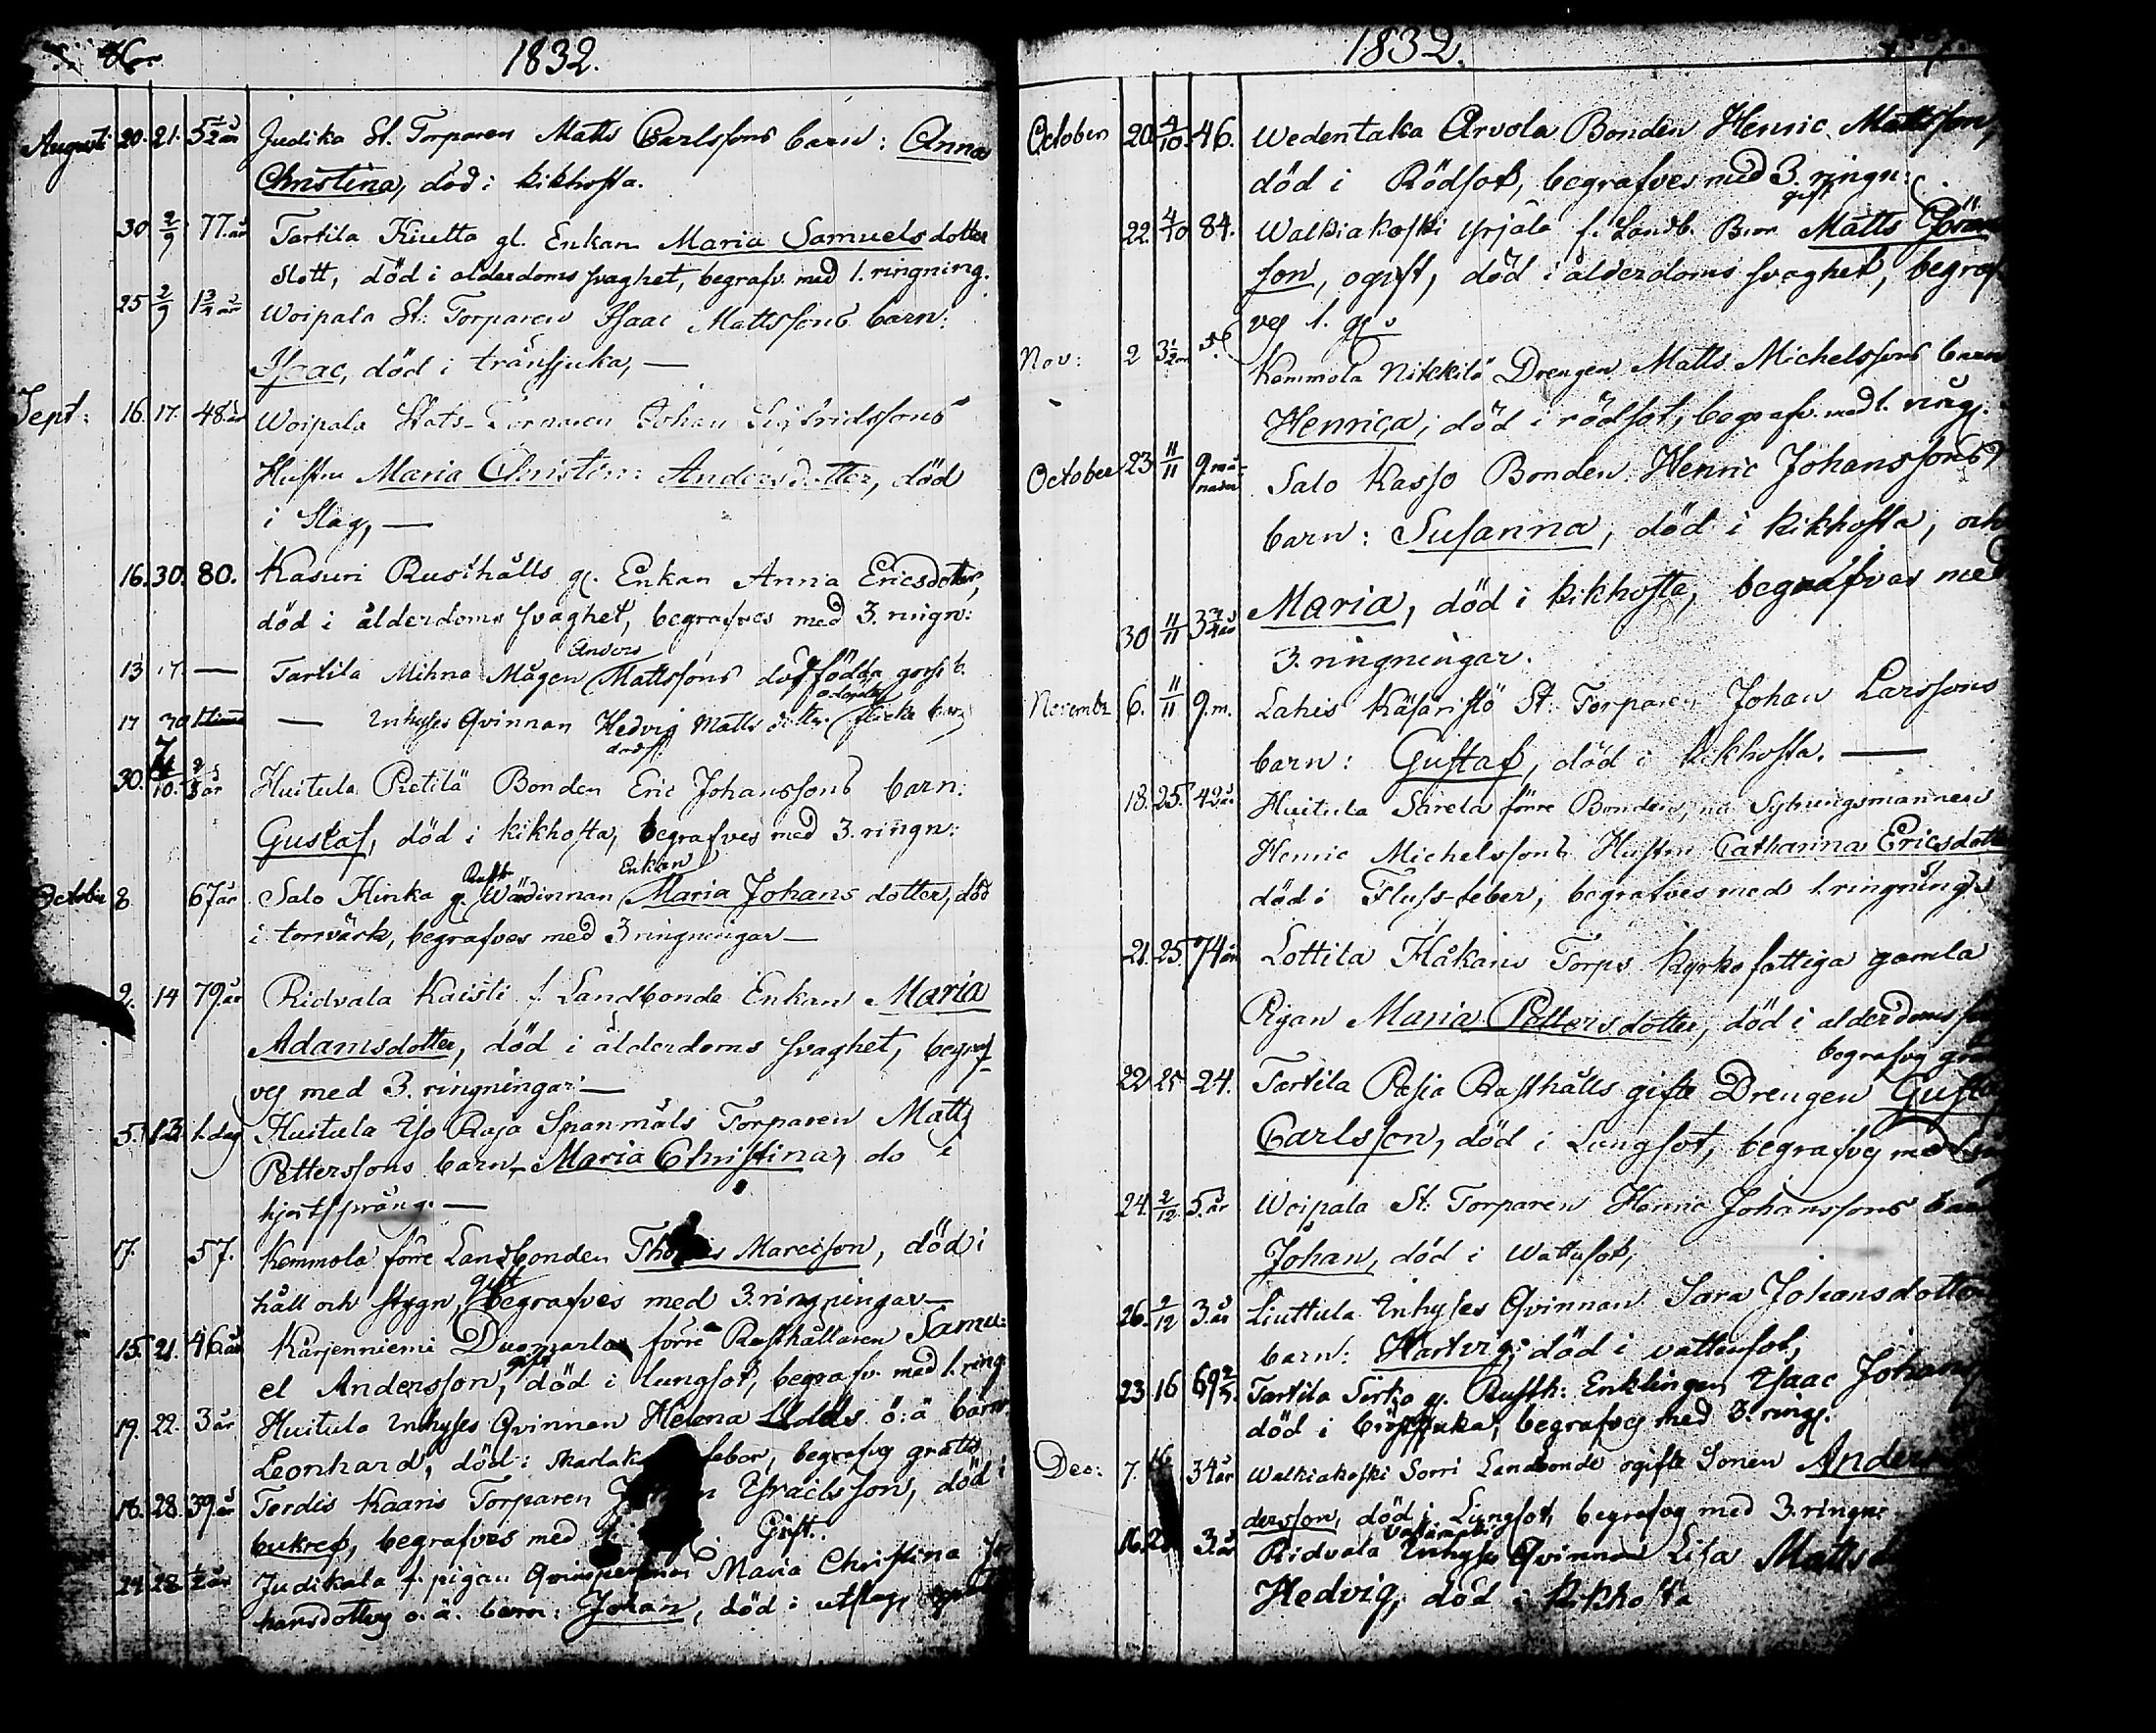 1832.
Augusti 20. 21. 5 1/2 år Judika St. Torparen Matts Carlssons barn: Anna
Christina, död i kikhosta.
30 2/9 77. år Tartila Kiutta gl. Enkan Maria Samuelsdotter
Slott, död i alderdoms svaghet, begrafv. med 1. ringning.
25 2/9 1 3/4 år Woipala St: Torparen Isaac Mattssons barn:
Isaac, död i trånsjuka, —
Sept: 16. 17. 48. år Woipala Stats-Torparen Johan Sigfridssons
Hustru Maria Christin: Andersdotter, död
i Slag, —
16. 30. 80. Kasuri Rusthålls gl. Enkan Anna Ericsdotter,
död i ålderdoms svaghet, begrafves med 3. ringn:
Anders
13 17. — Tartila Mihna Mågen Mattssons dödfödda gosse b.
17 30 — Inhyses Qvinnan Hedvig Matts dotter flicke barn
dödf.
30. 7/10. år Huitula Pietilä Bonden Eric Johanssons barn:
Gustaf, död i kikhosta, begrafves med 3. ringn:
Rusth. Enkan
October 8 67 år Salo Hinka gl. Wärdinnan Maria Johans dotter, död
i torrvärk, begrafves med 3 ringningar —
9. 14 79. år Ridvala Kaisti f. Landbonde Enkan Maria
Adamsdotter, död i ålderdoms svaghet, begraf-
ves med 3. ringningar —
5. 13 1. dag Huitula Yso Raja Spanmåls Torparen Matts
Petterssons barn, Maria Christina, do i
hjertsprång. —
17. 57. Kemmola förre Landbonden Thomas Marcisson, död i
gift
håll och stygn, begrafves med 3. ringningar —
15. 21. 46. år Kärjenniemi förre Rusthållaren Samu-
gift
el Andersson, död i lungsot, begrafv. med 1. ring.
19. 22. 3 år Huitula Inhyses Qvinnan Helena o: ä barn
Leonhard, död i feber, begrafves gratis
18. 28. 39. år Terdis Kaaris Torparen Israelsson, död i
bukref, begrafves med Gift.
24 28 1/2 år Judikala f. pigan Maria Christina Jo-
hansdotters o. ä. barn: Johan, död i utslag,
1832.
October 20 4/10. 46. Wedentaka Arvola Bonden Henric Mattsson,
död i Rödsot, begrafves med 3. ringn:
gift
22. 4/10 84. Walkiakoski Yrjälä f. Landb. Matts Göran
son, ogift, död i ålderdoms svaghet, begraf
ves 1. gl.
Nov: 2 3 1/2 Kemmola Nikkilä Drengen Matts Michelssons barn
Henrica, död i rödsot, begrafv. med 1. ring.
October 23 11/11 9 må-
nader Salo Kasso Bonden Henric Johanssons
barn: Susanna, död i kikhosta, och
30 11/11 3 3/4 år Maria, död i kikhosta, begrafves med
3. ringningar.
Novembr 6. 11/11 9. m. Lahis Käsäristö St. Torparen Johan Larssons
barn: Gustaf, död i kikhosta. —
18. 25. 42 år Huitula Sarela förre Bonden, nu Sytningsmannen
Henric Michelssons Hustru Catharina Ericsdotter
död i Fluss-feber, begrafves med 1. ringning.
21. 25. 74 år Lottila Håkans Torps kyrkofattiga gamla
Pigan Maria Pettersdotter, död i alderdoms
begrafves
22 25 24. Tartila Pasia Rusthålls gifte Drengen Gustaf
Carlsson, död i Lungsot, begrafves med
24. 2/12. 5. år Woipala St: Torparen Henric Johanssons barn
Johan, död i wattusot,
26. 2/12 3. år Liuttula Inhyses Qvinnan Sara Johansdotter
barn: Hartvig, död i vattusot,
23 16 69 Tartila Sirko gl. Rusth: Enklingen Isaac Johans
död i bröstsjuka, begrafves med 3. ring.
Dec: 7. 34 år Walkiakoski Sorri Landbonde ogifte Sonen Anders
dersson, död i Lungsot, begrafves med 3. ringn:
16. 3. år Ridvala Inhyses Qvinnan Lisa Matts
Hedvig, död i kikhosta